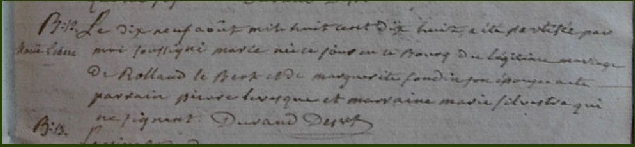 B: 12. Le dix neuf août mil huit cent dix huit, a été baptisée par
Marie Le Berr moi soussigné marie née ce jour en ce Bourg du légitime mariage
de Rolland le Berr et de marguerite son épouse a été
parrain pierre levesque et marraine marie silvestre qui
ne signent. Durand Desser
B: 13.